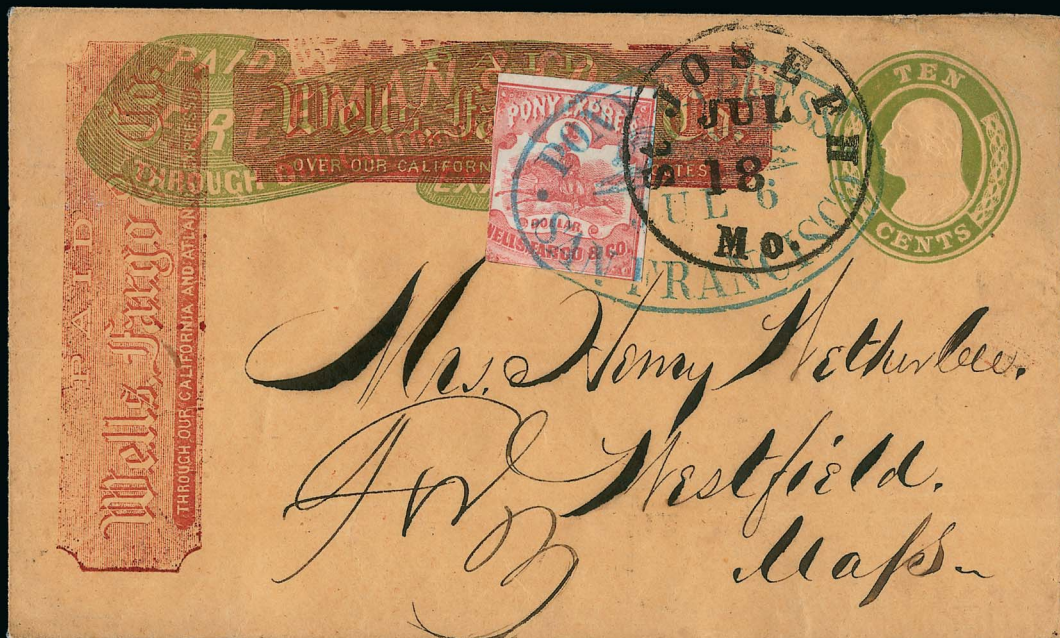 PAID
Wells, Fargo & Co.
THROUGH OUR CALIFORNIA AND ATLANTIC EXPRESS
PAID
FREE
THROUGH
PAID
Wells, Fargo & Co.
OVER OUR CALIFORNIA
PONY EXPRESS
DOLLAR
WELLS, FARGO & CO.
PONY EXPRESS
JUL 6
SAN FRANCISCO
ST. JOSEPH
JUL
18
Mo.
TEN
CENTS
Mrs. Henry Wetherbee.
Westfield.
Mass